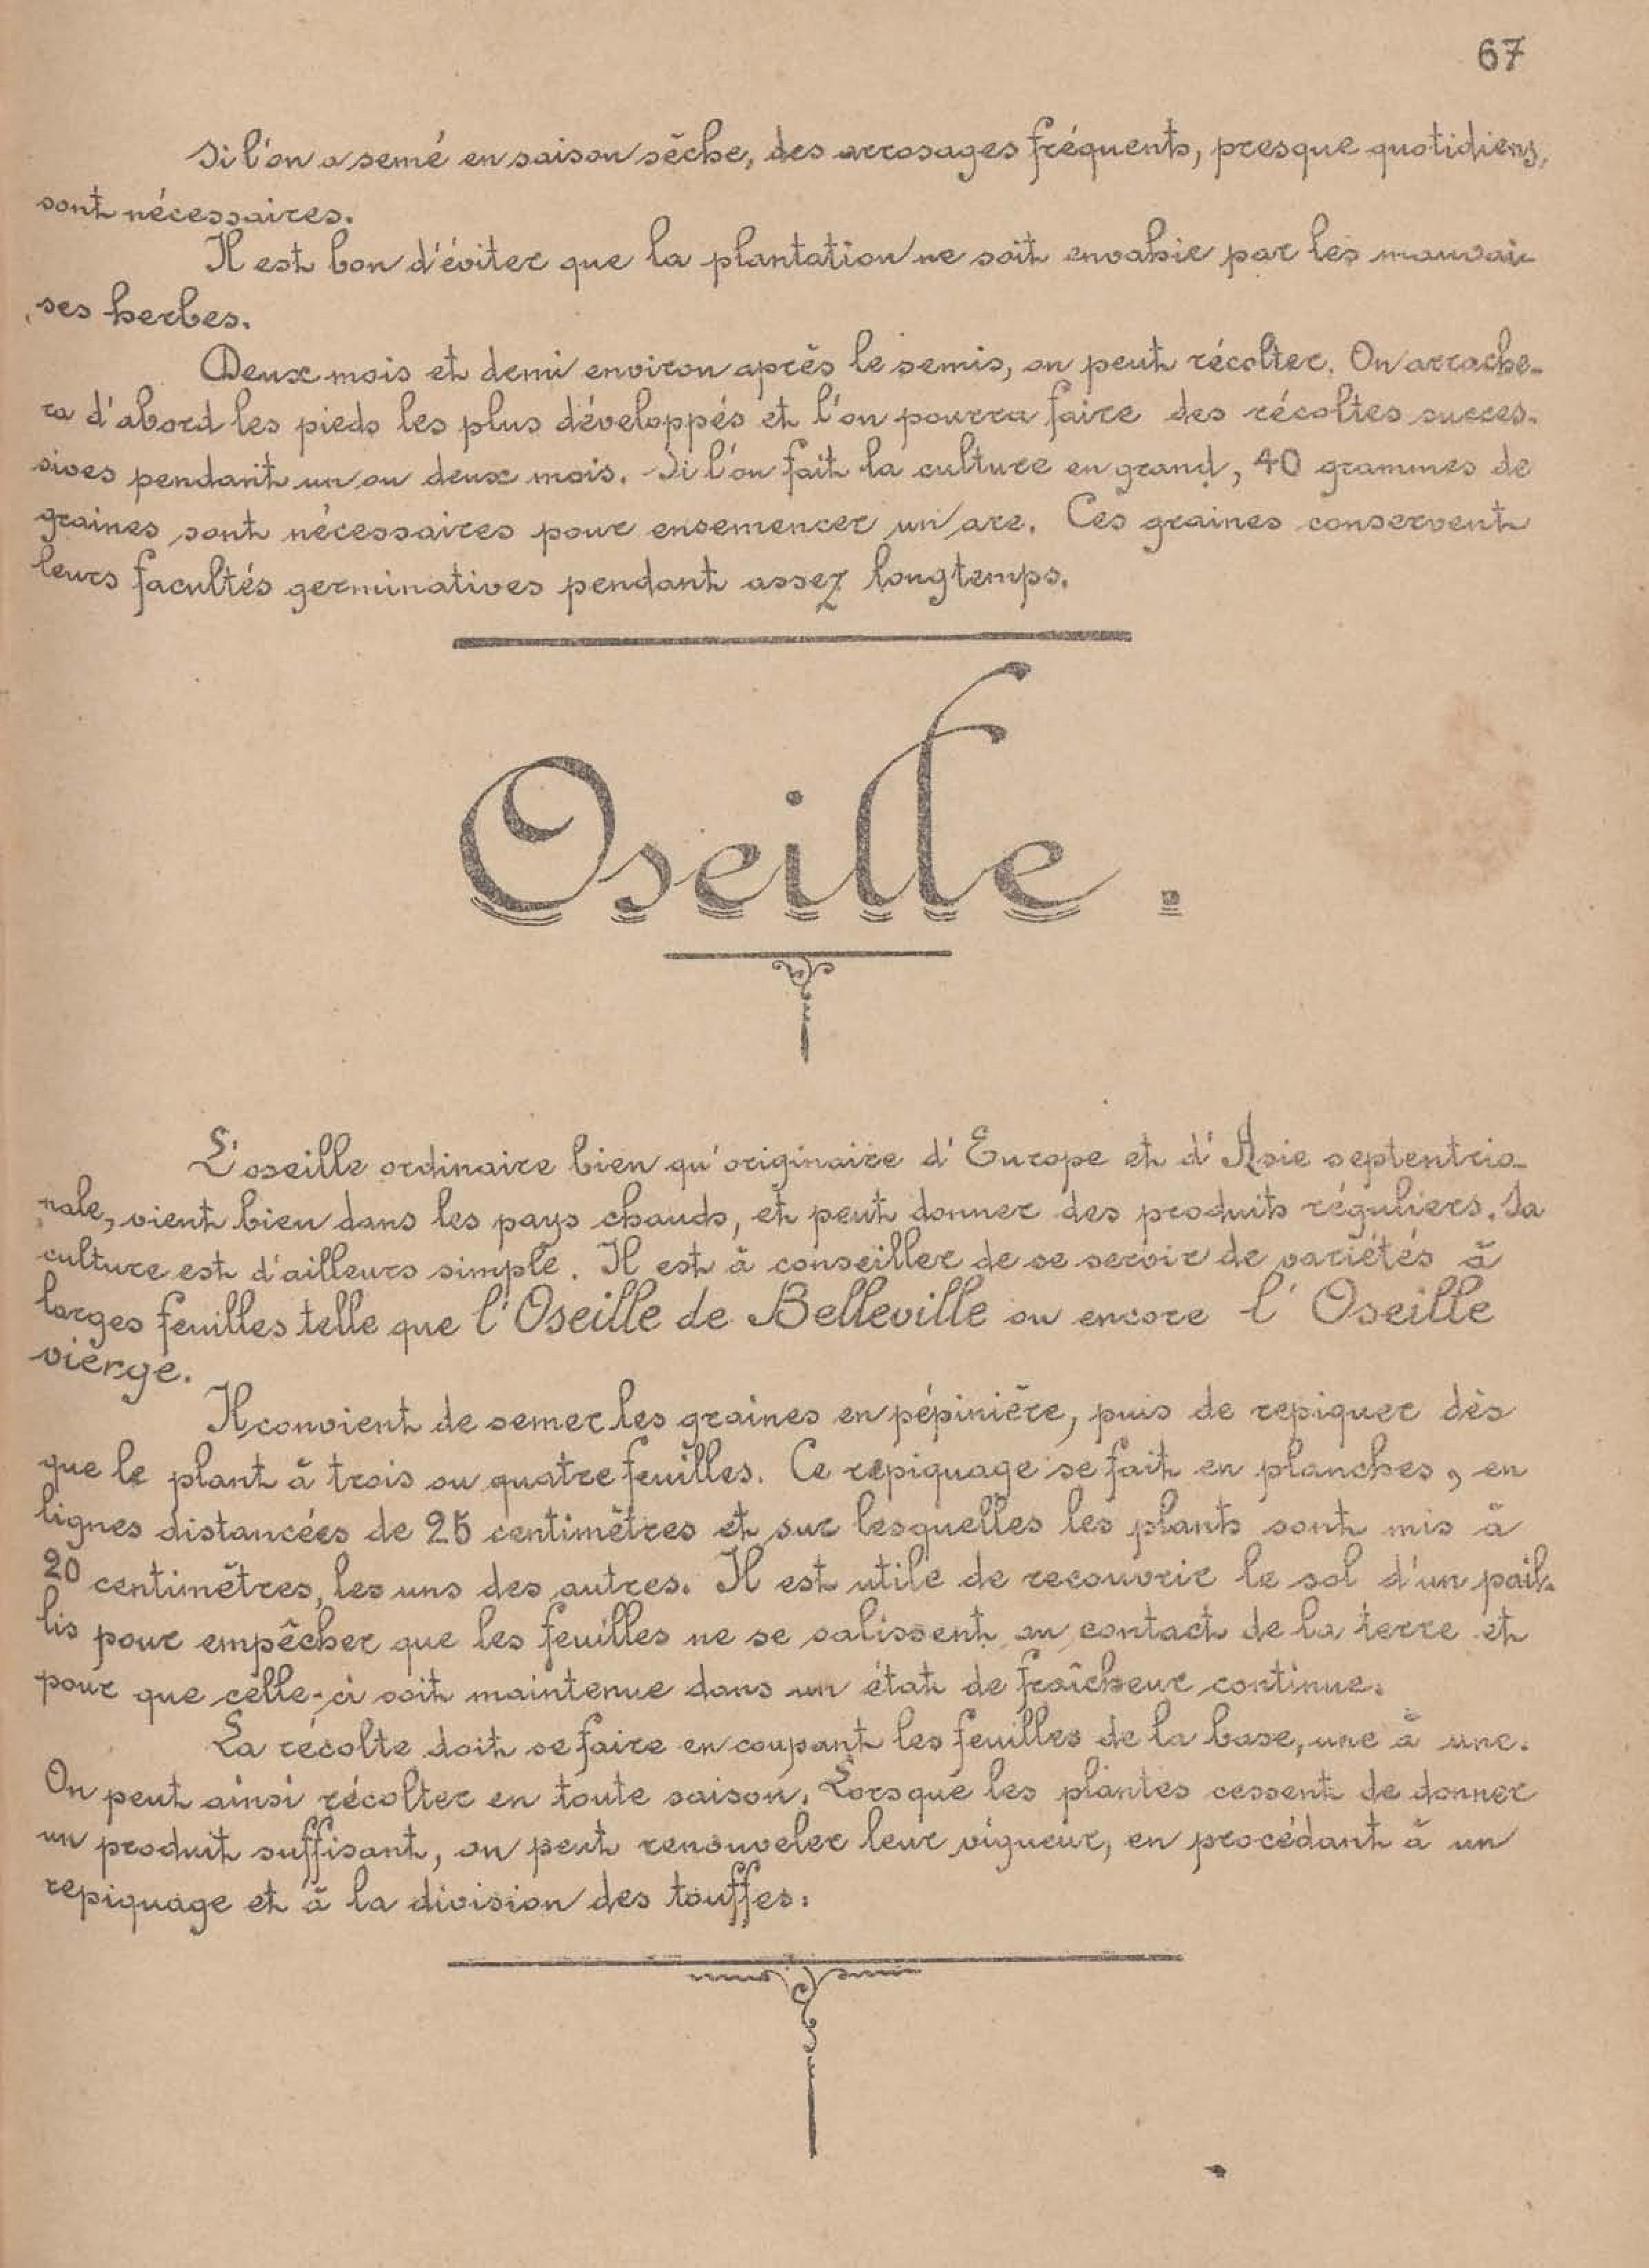 67
Si l'on a semé en saison sèche, des arrosages fréquents, presque quotidiens,
sont nécessaires.
Il est bon d'éviter que la plantation ne soit envahie par les mauvai-
ses herbes.
Deux mois et demi environ après le semis, on peut récolter. On arrache-
ra d'abord les pieds les plus développés et l'on pourra faire des récoltes succes-
sives pendant un ou deux mois. Si l'on fait la culture en grand, 40 grammes de
graines sont nécessaires pour ensemencer un are. Ces graines conservent
leurs facultés germinatives pendant assez longtemps.
Oseille.
L'oseille ordinaire bien qu'originaire d'Europe et d'Asie septentrio-
nale, vient bien dans les pays chauds, et peut donner des produits réguliers. Sa
culture est d'ailleurs simple. Il est à conseiller de se servir de variétés à
larges feuilles telle que l'Oseille de Belleville ou encore l'Oseille
vierge.
Il convient de semer les graines en pépinière, puis de repiquer dès
que le plant à trois ou quatre feuilles. Ce repiquage se fait en planches, en
lignes distancées de 25 centimètres et sur lesquelles les plants sont mis à
20 centimètres, les uns des autres. Il est utile de recouvrir le sol d'un pail-
lis pour empêcher que les feuilles ne se salissent au contact de la terre et
pour que celle-ci soit maintenue dans un état de fraîcheur continue.
La récolte doit se faire en coupant les feuilles de la base, une à une.
On peut ainsi récolter en toute saison. Lorsque les plantes cessent de donner
un produit suffisant, on peut renouveler leur vigueur, en procédant à un
repiquage et à la division des touffes.